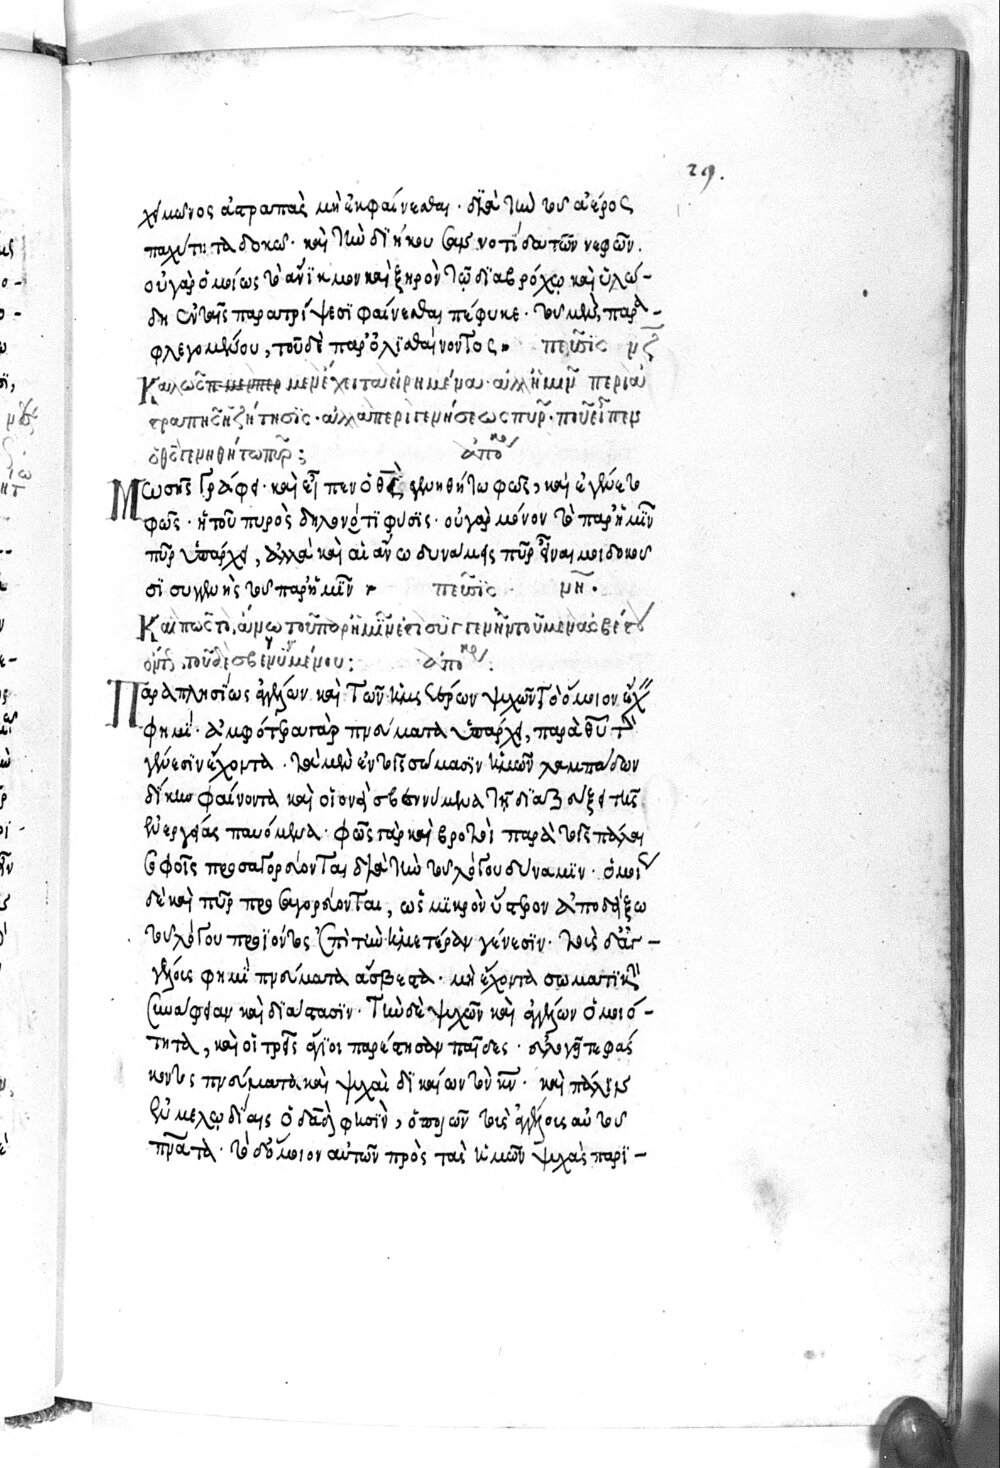 29.
χειμῶνος ἀστραπὰς μὴ ἐκφαίνεσθαι· διὰ τὴν τοῦ ἀέρος
παχύτητα δοκῶ· καὶ τὴν διήκουσαν νοτίδα τῶν νεφῶν.
οὐ γὰρ ὁμοίως τὸ ἄνικμον καὶ ξηρὸν τῷ διαβρόχῳ καὶ ὑλώ-
δη ἐν ταῖς παρατρίψεσι φαίνεσθαι πέφυκε· τοῦ μὲν, παρα-
φλεγομένου, τοῦ δὲ παρολισθαίνοντος· πεῦσις μζ
Καλῶς μὲν ἔχει τὰ εἰρημένα· ἀλλ' ἡμῖν περὶ ἀ
στραπῆς ἡ ζήτησις· ἀλλὰ περὶ γενήσεως πυρός· ποῦ εἶπεν
ὁ θεὸς γενηθήτω πῦρ; ἀπό
Μωσῆς γράφει· καὶ εἶπεν ὁ θεὸς γενηθήτω φῶς, καὶ ἐγένετο
φῶς· ἤτου πυρὸς δηλονότι φύσις· οὐ γὰρ μόνον τὸ παρ' ἡμῖν
πῦρ ὑπάρχει, ἀλλὰ καὶ αἱ ἄνω δυνάμεις πῦρ εἶναί μοι δοκοῦ
σι συγγενὴς τοῦ παρ' ἡμῖν πεῦσις μη.
Καὶ πῶς τὸ ἄνω τοῦ παρ' ἡμῖν ἐστι συγγενὴς τοῦ μὲν ἀσβέστου
ὄντος, τοῦ δὲ σβεννυμένου: ἀπό
Παραπλησίως ἀγγέλων καὶ τῶν ἡμετέρων ψυχῶν τὸ ὅμοιον ἔχει
φημί· ἀμφότερα γὰρ πνεύματα ὑπάρχει, παρὰ θεοῦ τὴν
γένεσιν ἔχοντα· τὰ μὲν ἐν τοῖς σώμασιν ἡμῶν λαμπάδων
δίκην φαίνοντα καὶ οἱονεὶ σβεννύμενα τῇ διαζεύξει τῆς
ἐνεργείας παυόμενα· φῶς γὰρ καὶ βροτοὶ παρὰ τοῖς πάλαι
σοφοῖς προσαγορεύονται διὰ τὴν τοῦ λόγου δύναμιν· ὁμοίως
δὲ καὶ πῦρ προσαγορεύονται, ὡς μικρὸν ὕστερον ἀποδείξω
τοῦ λόγου προϊόντος ἐπὶ τὴν ἡμετέραν γένεσιν· τοῖς δὲ ἀγ-
γέλοις φημὶ πνεύματα ἄσβεστα· μὴ ἔχοντα σωματικὴν
συνάφειαν καὶ διάστασιν· τὴν δὲ ψυχῶν καὶ ἀγγέλων ὁμοιό-
τητα, καὶ οἱ τρεῖς ἅγιοι παρέστησαν παῖδες· εὐλογεῖτε φάσ
κοντες πνεύματα καὶ ψυχαὶ δικαίων τὸν κν· καὶ πάλιν
ἐν μελῳδίαις ὁ δαδ φησὶν, ὁ ποιῶν τοὺς ἀγγέλους αὐτοῦ
πνατα· τὸ δ' ὅμοιον αὐτῶν πρὸς τὰς ἡμῶν ψυχὰς παρι-